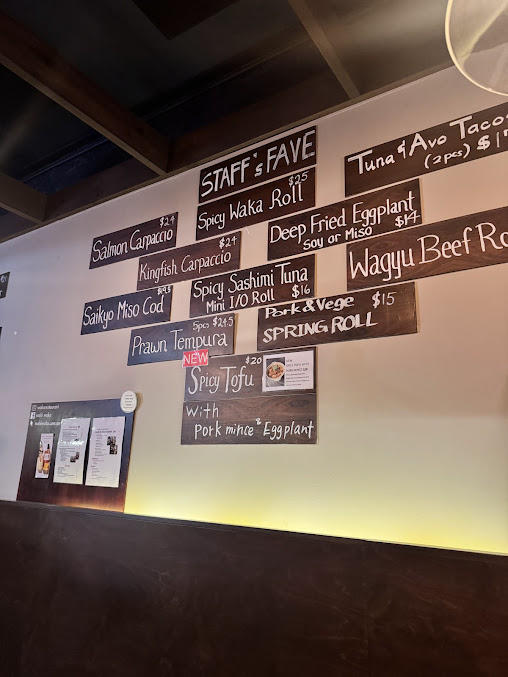 STAFF's FAVE
Tuna & Avo Taco
(2 pcs) $1
$25
Spicy Waka Roll
$24
Salmon Carpaccio
Deep Fried Eggplant
Soy or Miso $14
$24
Kingfish Carpaccio
Wagyu Beef Ro
Spicy Sashimi Tuna
Mini I/O Roll $16
Saikyo Miso Cod
Pork & Vege $15
SPRING ROLL
5pcs $24.5
Prawn Tempura
NEW
$20
Spicy Tofu
With
Pork mince & Eggplant